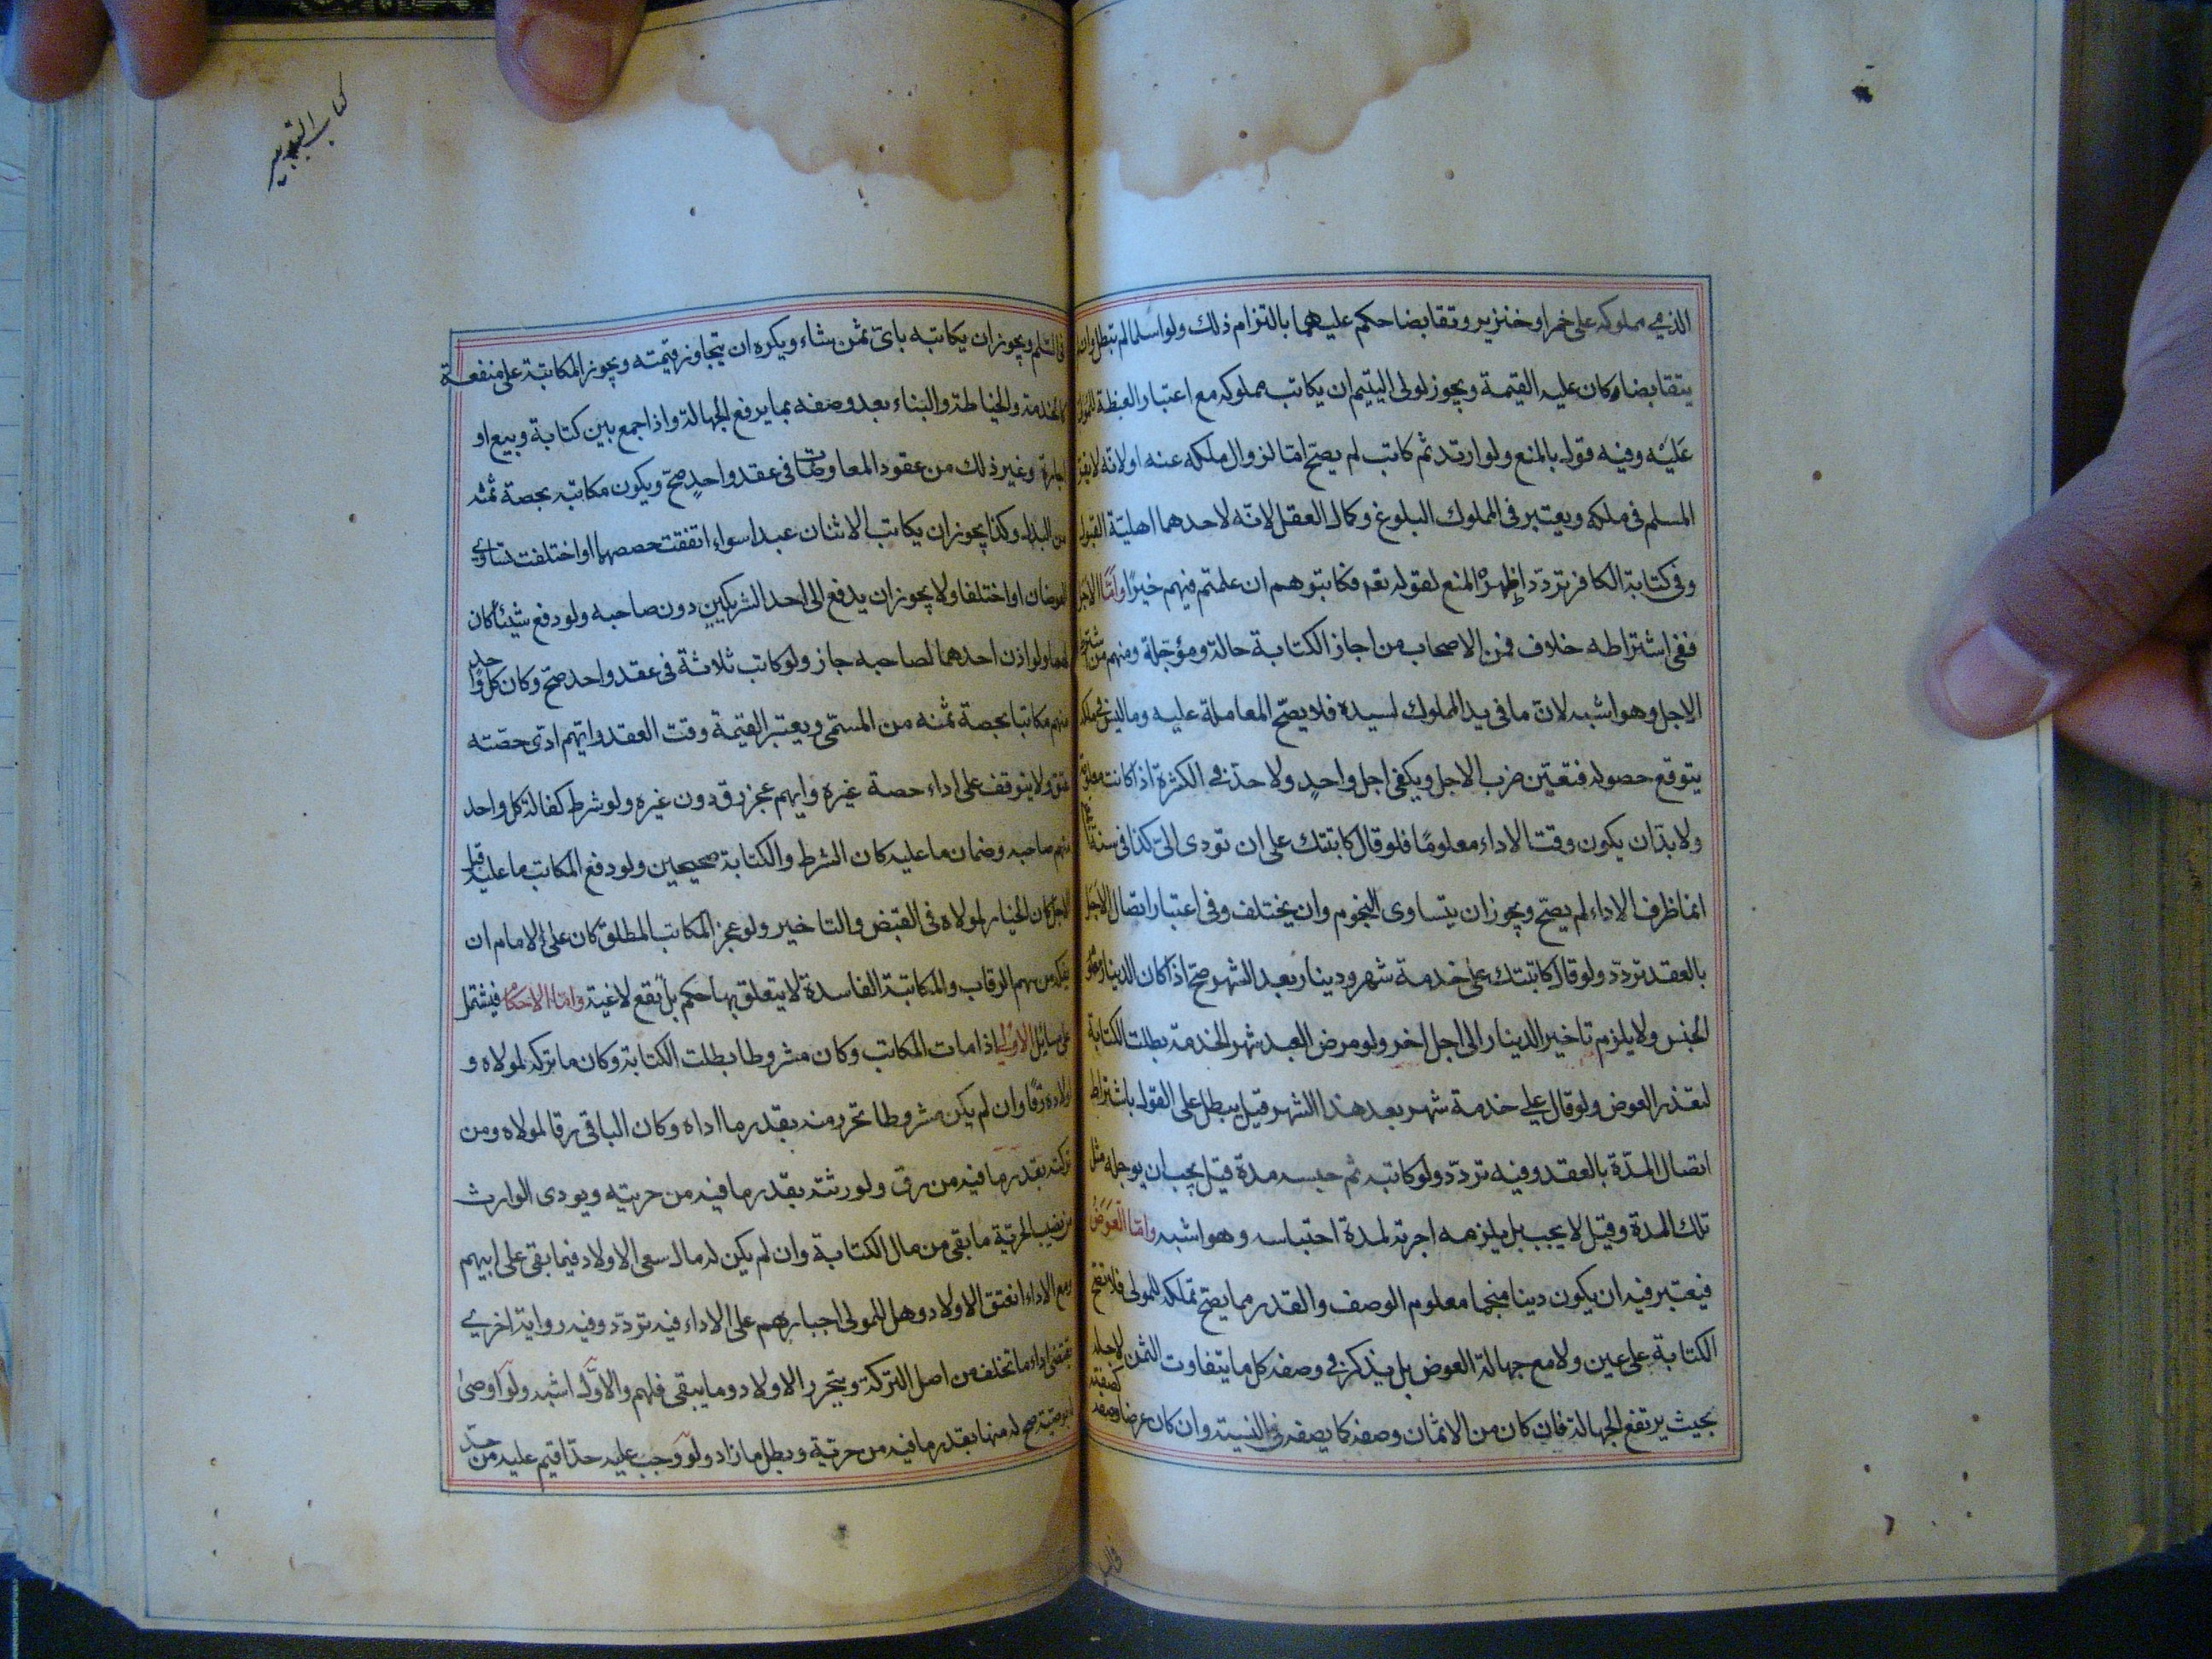 الذمي مملوكه على خمر او خنزير وتقابضا حكم عليهما بالتزام ذلك ولو اسلما لم تبطل وان لم
يتقابضا وكان عليه القيمة ويجوز لولى اليتيم ان يكاتب مملوكه مع اعتبار الغبطة للمولى
عليه وفيه قول بالمنع ولو ارتد ثم كاتب لم يصح امّا لزوال ملكه عنه او لانه لا يقر
المسلم فى ملكه ويعتبر فى المملوك البلوغ وكمال العقل لانّه لاحدهما اهليّة القبول
وفى كتابة الكافر تردّد اظهره المنع لقوله تعم فكاتبوهم ان علمتم فيهم خيرًا وامّا الاجل
ففى اشتراطه خلاف فمن الاصحاب من اجاز الكتابة حالة ومؤجّلة ومنهم من شترط
الاجل وهو اشبه لان ما فى يد المملوك لسيده فلا يصحّ المعاملة عليه وما ليس فى ملكه
يتوقع حصوله فتعيّن ضرب الاجل ويكفى اجل واحدٍ ولا حدّ فى الكثرة اذا كانت معلومة
ولا بدّ ان يكون وقت الاداء معلومًا فلو قال كاتبتك على ان تودى الىّ كذا فى سنة
انها ظرف الاداء لم يصحّ ويجوز ان يتساوى النجوم وان يختلف وفى اعتبار اتصال الاجل
بالعقد تردّد ولو قال كاتبتك على خدمة شهر ودينار بعد الشهر صحّ اذا كان الدينار معلوم
الجنس ولا يلزم تاخير الدينار الى اجل اخر ولو مرض العبد شهر الخدمة بطلت الكتابة
لتعذر العوض ولو قال على خدمة شهر بعد هذا الشهر قيل يبطل على القول باشتراط
اتصال المدّة بالعقد وفيه تردّد ولو كاتبه ثم حبسه مدة قيل يجب ان يوجله مثل
تلك المدة وقيل لا يجب بل يلزمه اجرته لمدة احتباسه وهو اشبه وامّا العوض
فيعتبر فيه ان يكون دينا منجما معلوم الوصف والقدر مما يصحّ تملكه للمولى فلا تصح
الكتابة على عين ولا مع جهالة العوض بل يذكر فى وصفه كل ما يتفاوت الثمن لاجله
بحيث يرتفع الجهالة فان كان من الاثمان وصفه كما يصفه فى النسية وان كان عرضا وصفه كصفته
فى السّلم ويجوز ان يكاتبه باىّ ثمن شاء ويكره ان يتجاوز قيمته ويجوز المكاتبة على منفعة
كالخدمة والخياطة والبناء بعد وصفه بما يرفع الجهالة واذا جمع بين كتابة وبيع او
اجارة وغير ذلك من عقود المعاوضات فى عقد واحدٍ صحّ ويكون مكاتبه بحصة ثمنه
من البدل وكذا يجوز ان يكاتب الاثنان عبدا سواء اتفقت حصصهما او اختلفت تساوى
العوضان او اختلفا ولا يجوز ان يدفع الى احد الشريكين دون صاحبه ولو دفع شيئًا كان
لهما ولو اذن احدهما لصاحبه جاز ولو كاتب ثلاثة فى عقد واحد صحّ وكان كلّ واحد
منهم مكاتبا بحصة ثمنه من المسمّى ويعتبر القيمة وقت العقد وايّهم ادّى حصّته
عتق ولا يتوقف على اداء حصة غيره وايهم عجز رق دون غيره ولو شرط كفالة كل واحد
منهم صاحبه وضمان ما عليه كان الشرط والكتابة صحيحين ولو دفع المكاتب ما عليه قبل
الاجل كان الخيار لمولاه فى القبض والتاخير ولو عجز المكاتب المطلق كان على الامام ان
يفكه من سهم الرقاب والمكاتبة الفاسدة لا يتعلق بها حكم بل تقع لاغية وامّا الاحكام فيشتمل
على مسائل الاولى اذا مات المكاتب وكان مشروطا بطلت الكتابة وكان ما تركه لمولاه و
اولاده رقا وان لم يكن مشروطا تحرر منه بقدر ما اداه وكان الباقى رقا لمولاه ومن
تركته بقدر ما فيه من رق ولورثته بقدر ما فيه من حريته ويودى الوارث
من نصيب الحريّة ما بقى من مال الكتابة وان لم يكن له مال سعى الاولاد فيما بقى على ابيهم
ومع الاداء انعتق الاولاد وهل للمولى اجبارهم على الاداء فيه تردّد وفيه رواية اخرى
تقتضى اداء ما تخلف من اصل التركة ويتحرر الاولاد وما يبقى فلهم والاوّل اشبه ولو اوصى
له بوصيّة صح له منها بقدر ما فيه من حريّة وبطل ما زاد ولو وجب عليه حدّ اقيم عليه من حدّ
كتاب التدبير